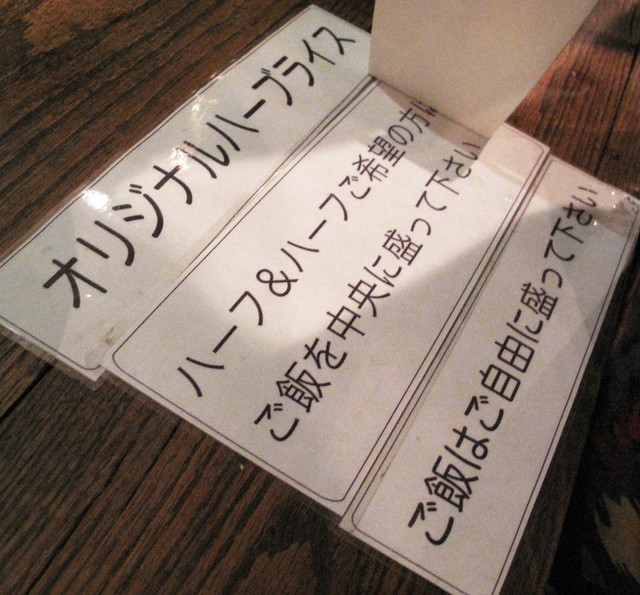 オリジナルハーブライス
ハーフ&ハーフご希望の方は
ご飯を中央に盛って下さい
ご飯はご自由に盛って下さい